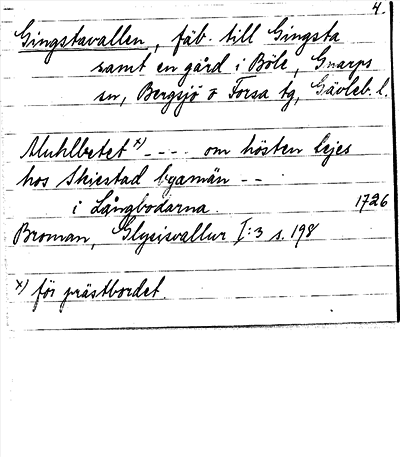 4.
Gingstavallen, fäb. till Gingsta
samt en gård i Böle, Gnarps
sn, Bergsjö o Forsa tg, Gävleb. l.
Muhlbetet x) - - - - om hösten Lejes
hos Skiestad byamän - -
i Långbodarna 1726
Broman, Glysisvallur I:3 s. 198
x) för prästbordet.